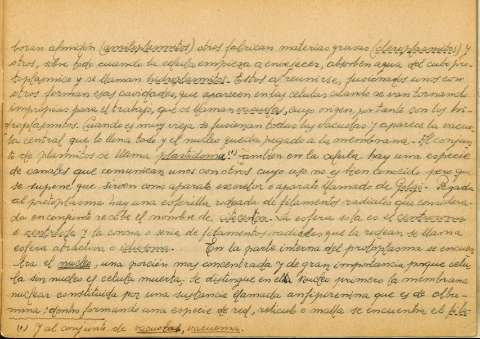 boran almidón (amiloplasmitos) otros fabrican materias grasas (oleoplasmitos) y
otros, sobre todo cuando la célula empieza a envejecer, absorben agua del citoplas-
ma y se llaman hidroplasmitos. Estos al reunirse, fusionados unos con
otros forman esas cavidades, que aparecen en las células cuando se van tornando
impropias para el trabajo, que se llaman vacuolas, cuyo origen, por tanto son los hi-
droplasmitos. Cuando es muy vieja se fusionan todas las vacuolas y aparece la vacuo-
la central que lo llena todo y el núcleo queda pegado a la membrana. El conjun-
to de plasmitos se llama plastidoma.(1) También en la célula hay una especie
de canales que comunican unos con otros cuyo uso no es bien conocido pero que
se supone que sirven como aparato excretor o aparato llamado de Golgi. Pegada
al protoplasma hay una esferilla rodeada de filamentos radiales que considera-
da en conjunto recibe el nombre de La esfera sola es el centrosoma
o y la corona o serie de filamentos radiales que la rodean se llama
esfera atractiva o En la parte interna del protoplasma se encuen-
tra el núcleo, una porción más concentrada y de gran importancia porque célu-
la sin núcleo es célula muerta. Se distingue en el núcleo primero la membrana
nuclear constituida por una sustancia llamada anfipirenina que es de albu-
mina; dentro formando una especie de red, retículo o malla se encuentra el
(1) Y al conjunto de vacuolas, vacuoma.